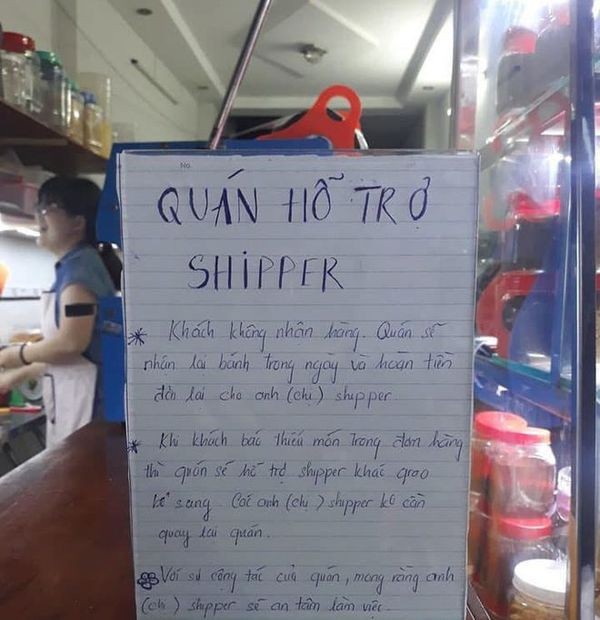 No.
QUÁN HỖ TRỢ
SHIPPER
* Khách không nhận hàng. Quán sẽ
nhận lại bánh trong ngày và hoàn tiền
đơn lại cho anh (chị) shipper.
* Khi khách báo thiếu món trong đơn hàng
thì quán sẽ hỗ trợ shipper khác giao
bổ sang. Các anh (chị) shipper ko cần
quay lại quán.
Với sự cộng tác của quán, mong rằng anh
(chị) shipper sẽ an tâm làm việc.